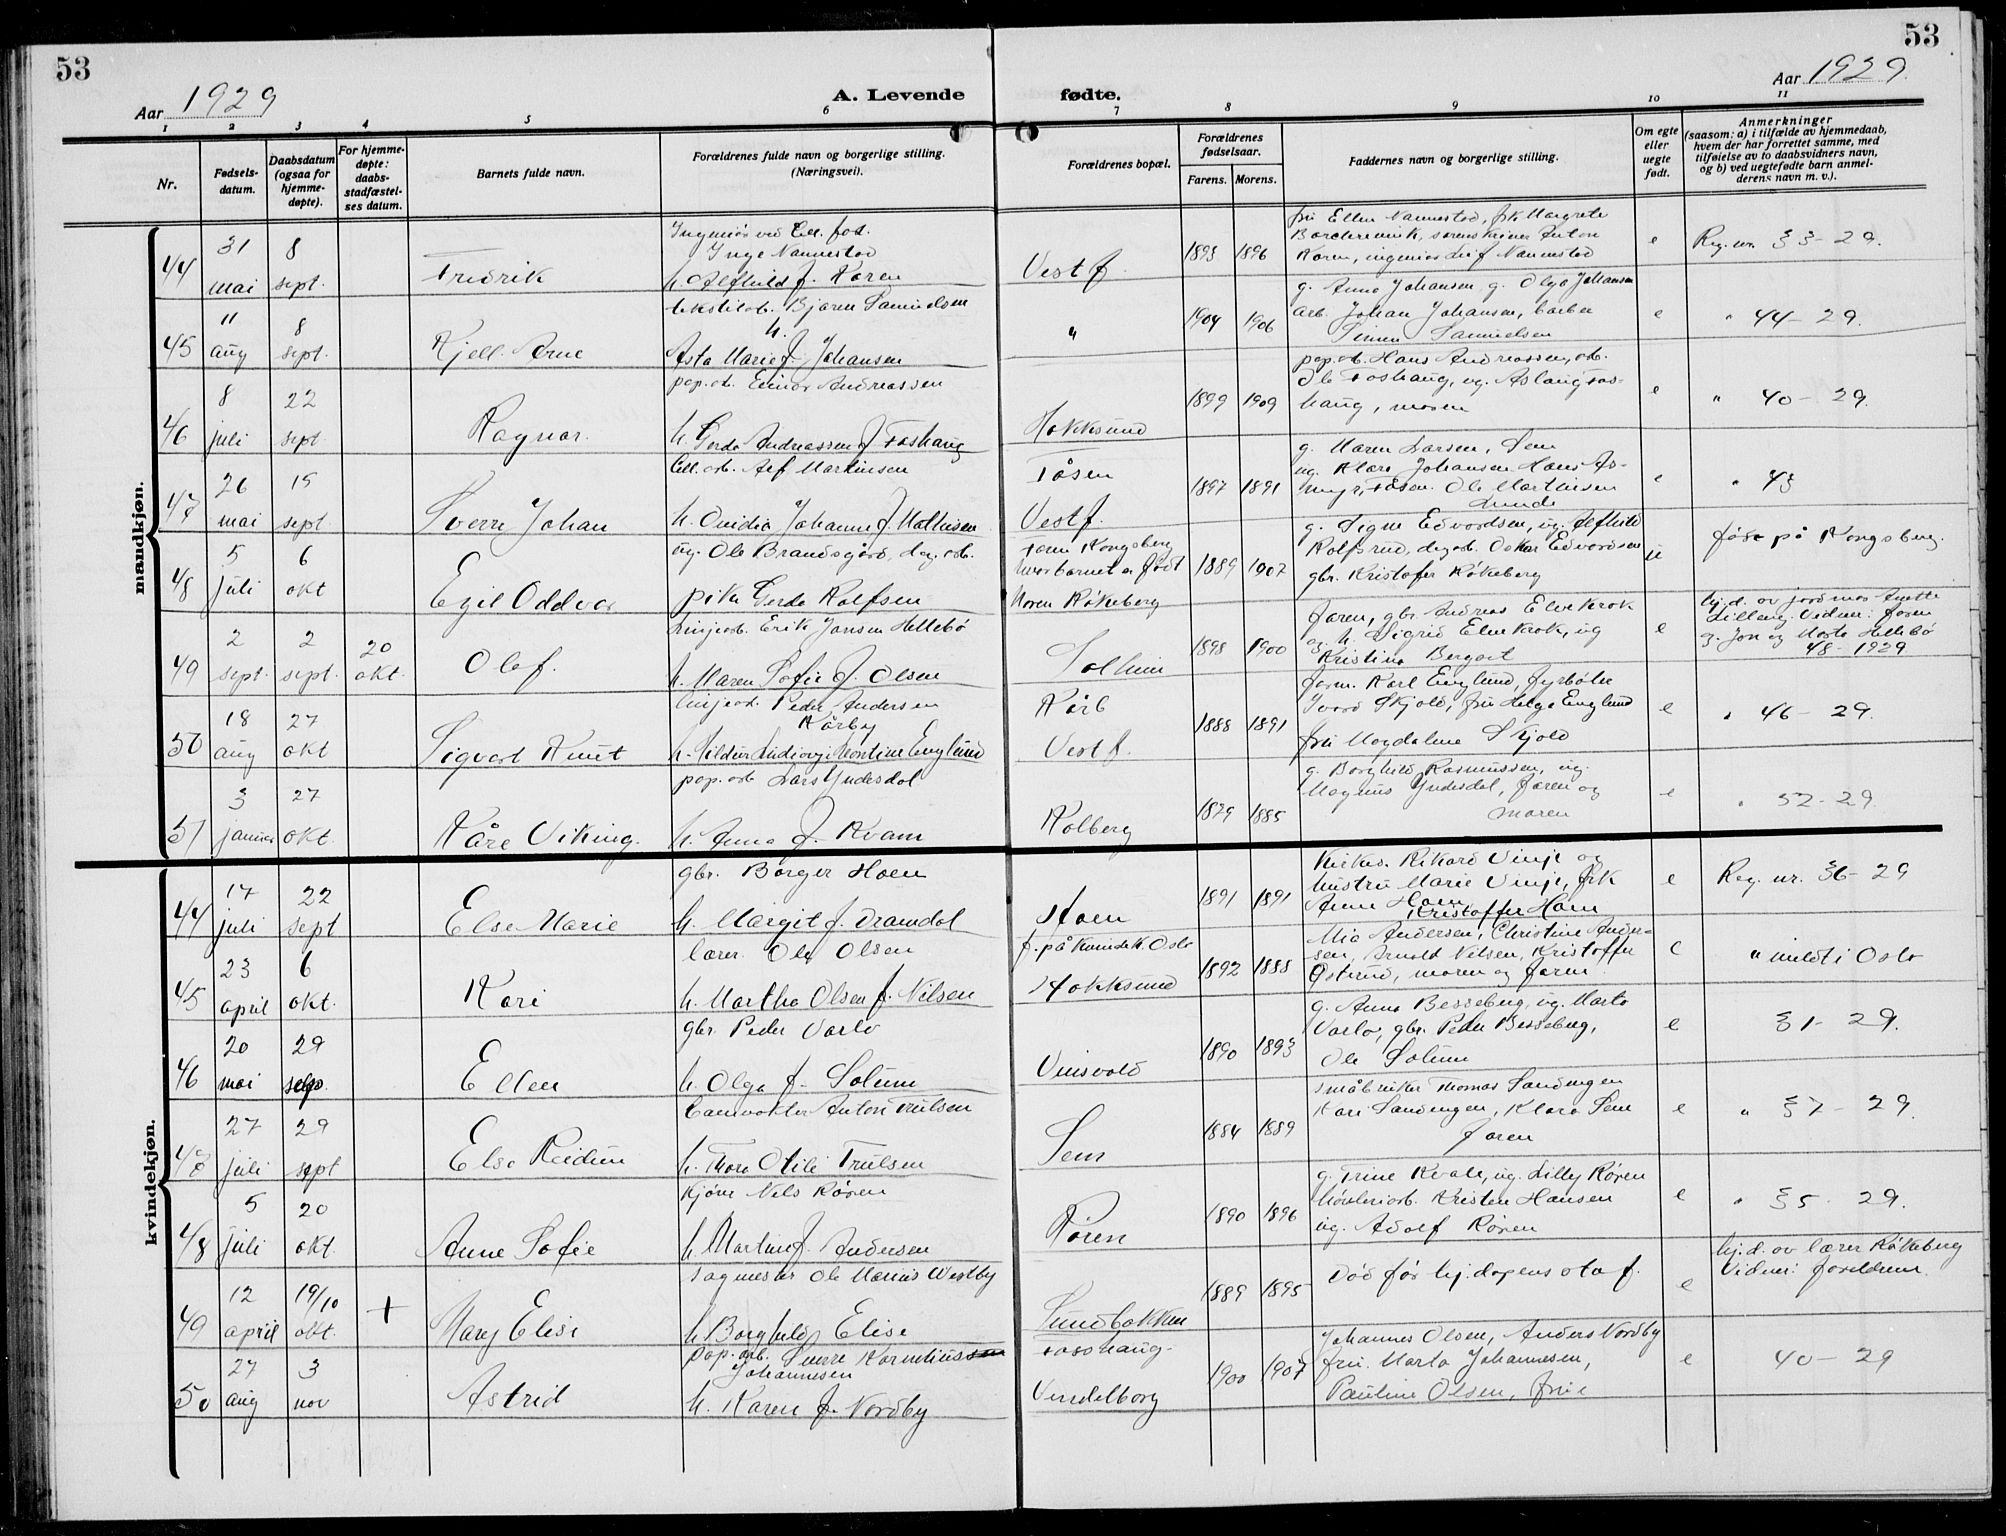 53
53
Aar 1929
A. Levende fødte.
Aar 1929.
1 2 3 4 5 6 7 8 9 10 11
Nr.
Fødsels-
datum.
Daabsdatum
(ogsaa for
hjemme-
døpte).
For hjemme-
døpte:
daabs-
stadfæstel-
ses datum.
Barnets fulde navn.
Forældrenes fulde navn og borgerlige stilling.
(Næringsvei).
Forældrenes bopæl.
Forældrenes
fødselsaar.
Farens. Morens.
Faddernes navn og borgerlige stilling.
Om egte
eller
uegte
født.
Anmerkninger
(saasom: a) i tilfælde av hjemmedaab,
hvem der har forrettet samme, med
tilføielse av to daabsvidners navn,
og b) ved uegtefødte barn anmel-
derens navn m. v.).
mandkjøn.
44 31 mai 8 sept. Fredrik
Ingeniør ved Cell. fab.
Inge Nannestad
h. Alfhild f. Koren
Vestf. 1893 1896
fru Ellen Nannestad, frk Margrete
sorenskriver Anton
Koren, ingeniør Leif Nannestad
e Reg. nr. 33-29.
45 11 aug 8 sept. Kjell Arne
Bjarne Samuelsen
h.
Asta Marie f. Johansen
" 1904 1906
g. Anna Johansen g. Olga Johansen
arb. Johan Johansen, barber
Simen Samuelsen
e " 44-29.
46 8 juli 22 sept. Ragnar.
pap. arb. Einar Andreassen
h. Gerda Andreassen f. Foshaug
Hokksund 1899 1909
pap. arb. Hans Andreassen, arb.
Ole Foshaug, ug. Aslaug Fos-
haug, moren
e " 40-29.
47 26 mai 15 sept. Sverre Johan
Cell. arb. Alf Martinsen
h. Ovidia Johanne f. Mathisen
Tåsen
Vestf. 1897 1891
g. Maren Larsen, Sem
ug. Klara Johansen Hans As-
myr, Tåsen. Ole Martinsen
Lunde
e " 43
48 5 juli 6 okt Egil Oddvar
ug. Ole Brandsgård, dag. arb.
pike Gerda Rolfsen
Faren Kongsberg
hvor barnet er født
Moren Røkeberg 1889 1907
g. Signe Edvardsen, ug. Alfhild
Rolfsrud, dag. arb. Oskar Edvardsen
gbr. Kristofer Røkeberg
u født på Kongsberg.
49 2 sept. 2 sept. 20 okt. Olaf.
Linjearb. Erik Jansen Hellebø
h. Maren Sofie f. Olsen
Solheim 1898 1900
Faren, gbr. Andreas Elvekrok
og h. Sigrid Elvekrok, ug
Kristine
e hj. d. av jordmor Anette
Lilleng. Vidner: faren
g. Jon og Marta Hellebø
48-1929
50 18 aug 27 okt Sigvart Knut
Linjearb. Peder Andersen
Kårby
h. Hildur Ludovig Martine Englund
Kårb
Vestf. 1888 1891
form. Karl Englund, fyrbøter
Ivard Skjold, fru Helga Englund
fru Magdalene Skjold
e " 46-29.
51 3 januar 27 okt. Kåre Viking.
pap. arb. Lars Yndesdal
h. Anna f. Kvam
Kolberg 1879 1885
g. Borghild Rasmussen, ug.
Magnus Yndesdal, faren og
moren
e " 52-29.
kvindekjøn.
44 17 juli 22 sept Else Marie
gbr. Borger Hoen
h. Margit f. Dramdal
Hoen 1891 1891
Kirkes. Rikard Vinje og
hustru Marie Vinje, frk
Anne Hoen,
Kristoffer Hoen
e Reg. nr. 36-29
45 23 april 6 okt. Kari
lærer Olaf Olsen
h. Martha Olsen f. Nilsen
f. på Kvindek. Oslo
Hokksund 1892 1888
Mia Andersen, Christine Ander-
sen, Arnold Nilsen, Kristoffer
Østrud, moren og faren
e " meldt i Oslo
46 20 mai 29 sept. Ellen
gbr. Peder Varlo
h. Olga f. Solum
Vinsvold 1890 1893
g. Anna Besseberg, ug. Marta
Varlo, gbr. Peder Besseberg,
Ole Solum
e 31-29.
47 27 juli 29 sept Else Reidun
Banevokter Anton Trulsen
h. Thora Otilie Trulsen
Sem 1884 1889
småbruker Thomas Sandengen
Kari Sandengen, Klara Sem
faren
e " 37-29.
48 5 juli 20 okt. Anne Sofie
kjører Nils Røren
h. Martine f. Andersen
Røren 1890 1896
g. Trine Kvale, ug. Lilly Røren
høvleriarb. Kristen Hansen
ug. Adolf Røren
e " 35 29.
49 12 april 19/10 okt. + Mary Elise
sagmester Ole Marius Westby
h. Borghild Elise
Sundbakken 1889 1895
Død før hj. dåpens staf.
e hj. d. av lærer Røkeberg
Vidner: foreldrene
50 27 aug 3 nov Astrid
pap. arb. Sverre Kornelius
Johannesen
h. Karen f. Nordby
Foshaug-
Vendelborg 1900 1907
Johannes Olsen, Anders Nordby
fru. Marta Johannesen,
Pauline Olsen, frue
e 40-29